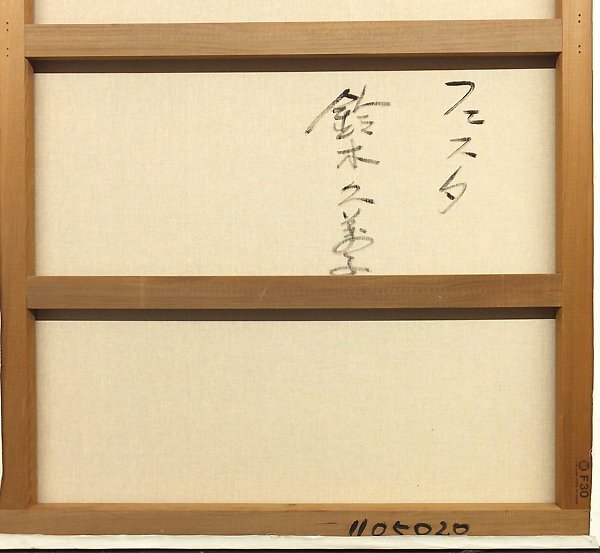 フェスタ
鈴木久美子
1105020
F30